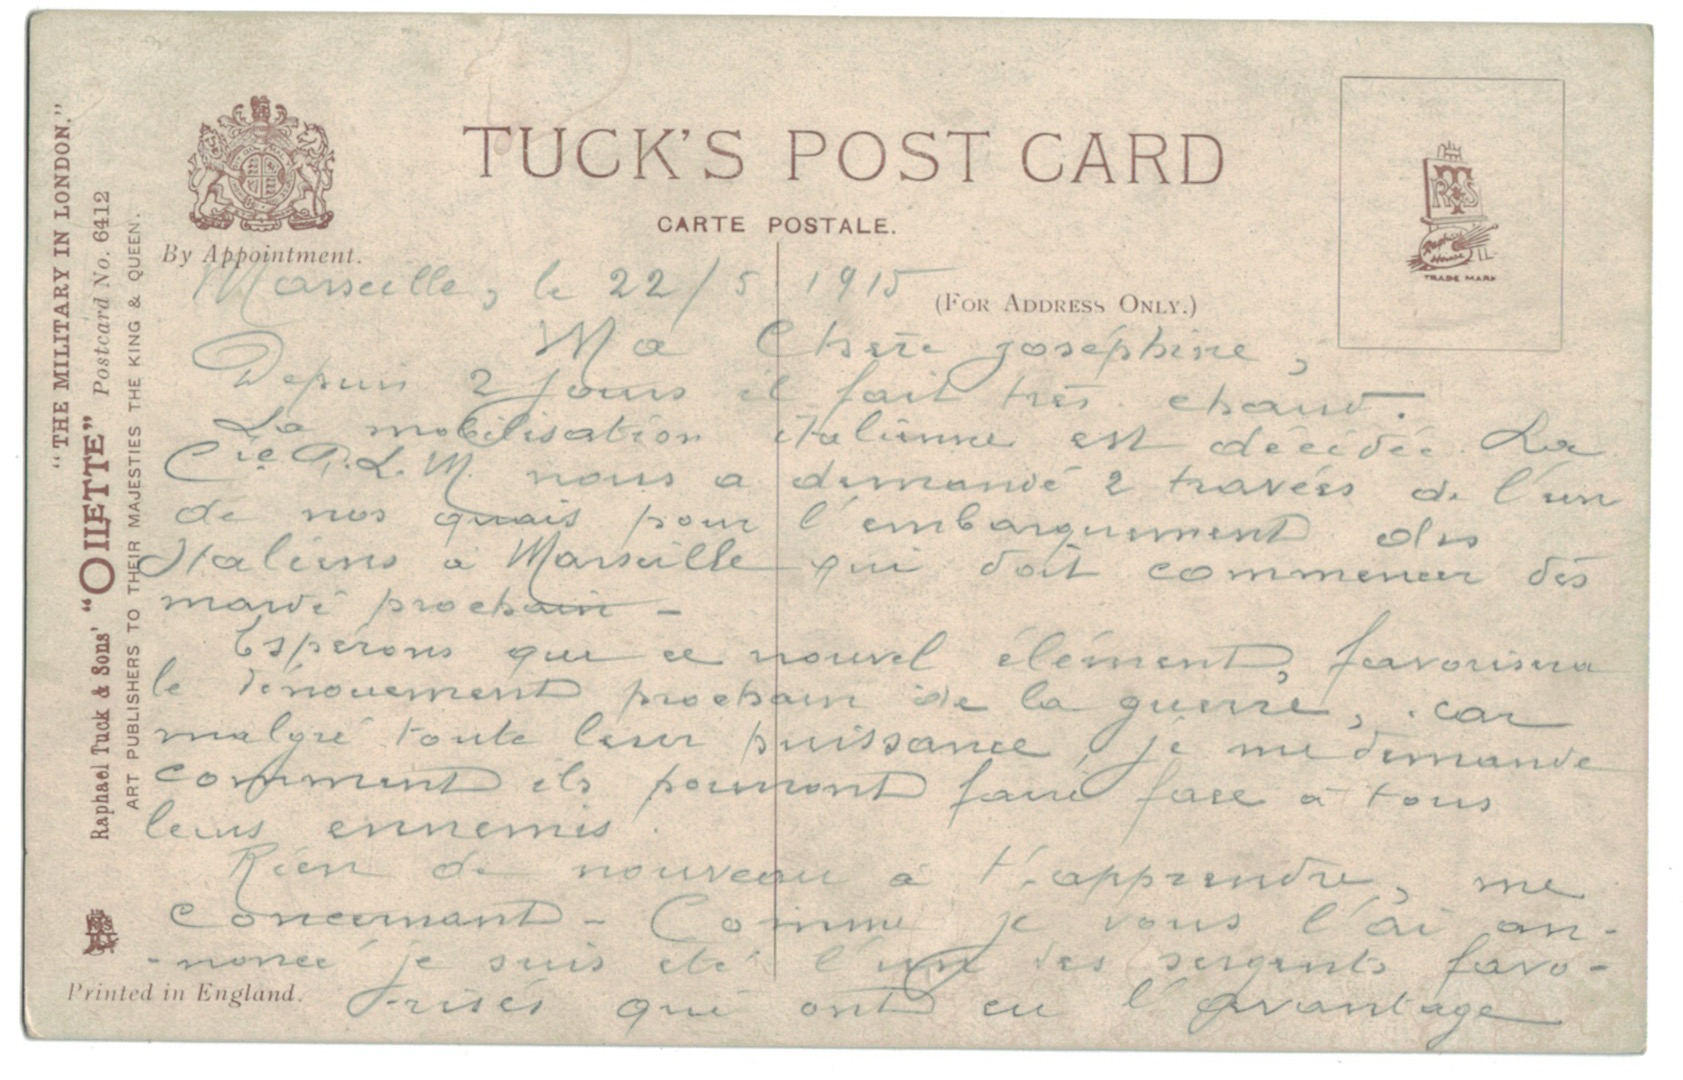 TUCK'S POST CARD
CARTE POSTALE.
By Appointment.
(FOR ADDRESS ONLY.)
TRADE MARK
"THE MILITARY IN LONDON."
Raphael Tuck & Sons' "OILETTE" Postcard No. 6412
ART PUBLISHERS TO THEIR MAJESTIES THE KING & QUEEN.
Printed in England.
Marseille, le 22/5 1915
Ma Chère Joséphine,
Depuis 2 jours il fait très chaud.
La mobilisation italienne est décidée. La
Cie P.L.M. nous a demandé 2 travées de l'un
de nos quais pour l'embarquement des
Italiens à Marseille qui doit commencer dès
mardi prochain -
Espérons que ce nouvel élément favorisera
le dénouement prochain de la guerre, car
malgré toute leur puissance, je me demande
comment ils pourront faire face à tous
leurs ennemis.
Rien de nouveau à t'apprendre, me
concernant - Comme je vous l'ai an-
-noncé je suis été l'un des sergents favo-
-risés qui ont eu l'avantage